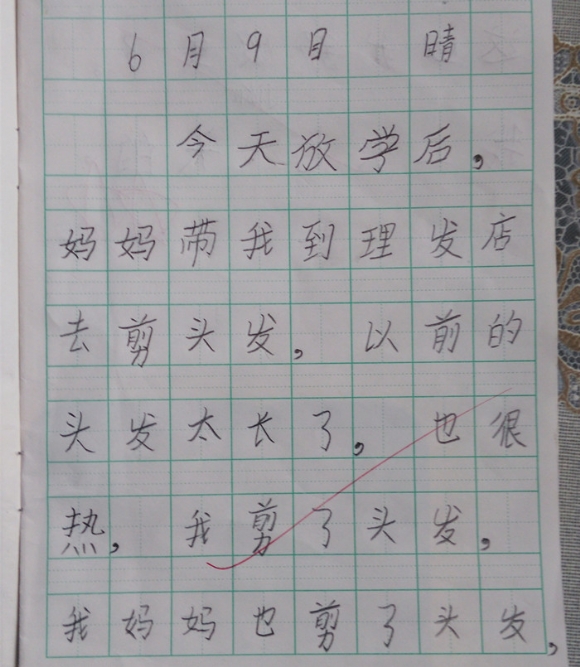 6月9日 晴
今天放学后，
妈妈带我到理发店
去剪头发，以前的
头发太长了，也很
热，我剪了头发，
我妈妈也剪了头发，